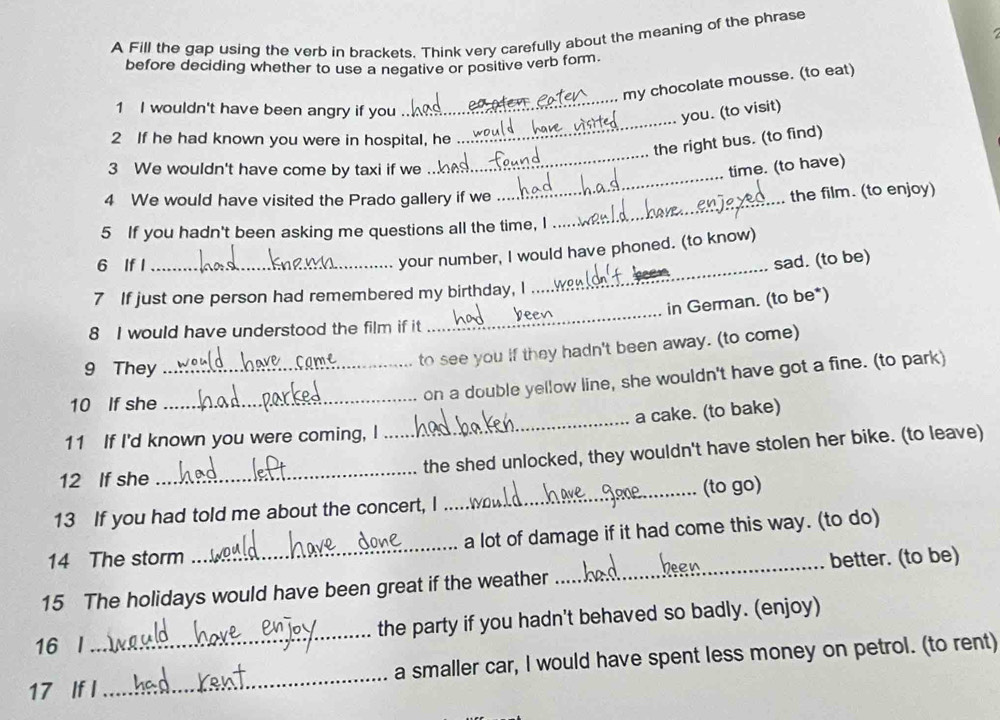 A Fill the gap using the verb in brackets. Think very carefully about the meaning of the phrase
before deciding whether to use a negative or positive verb form.
1 I wouldn't have been angry if you had eaten my chocolate mousse. (to eat)
2 If he had known you were in hospital, he would have visited you. (to visit)
3 We wouldn't have come by taxi if we had found the right bus. (to find)
4 We would have visited the Prado gallery if we had had time. (to have)
5 If you hadn't been asking me questions all the time, I would have enjoyed the film. (to enjoy)
6 If I had known your number, I would have phoned. (to know)
7 If just one person had remembered my birthday, I wouldn't been sad. (to be)
8 I would have understood the film if it had been in German. (to be*)
9 They would have come to see you if they hadn't been away. (to come)
10 If she had parked on a double yellow line, she wouldn't have got a fine. (to park)
11 If I'd known you were coming, I had baken a cake. (to bake)
12 If she had left the shed unlocked, they wouldn't have stolen her bike. (to leave)
13 If you had told me about the concert, I would have gone (to go)
14 The storm would have done a lot of damage if it had come this way. (to do)
15 The holidays would have been great if the weather had been better. (to be)
16 I would have enjoy the party if you hadn't behaved so badly. (enjoy)
17 If I had rent a smaller car, I would have spent less money on petrol. (to rent)